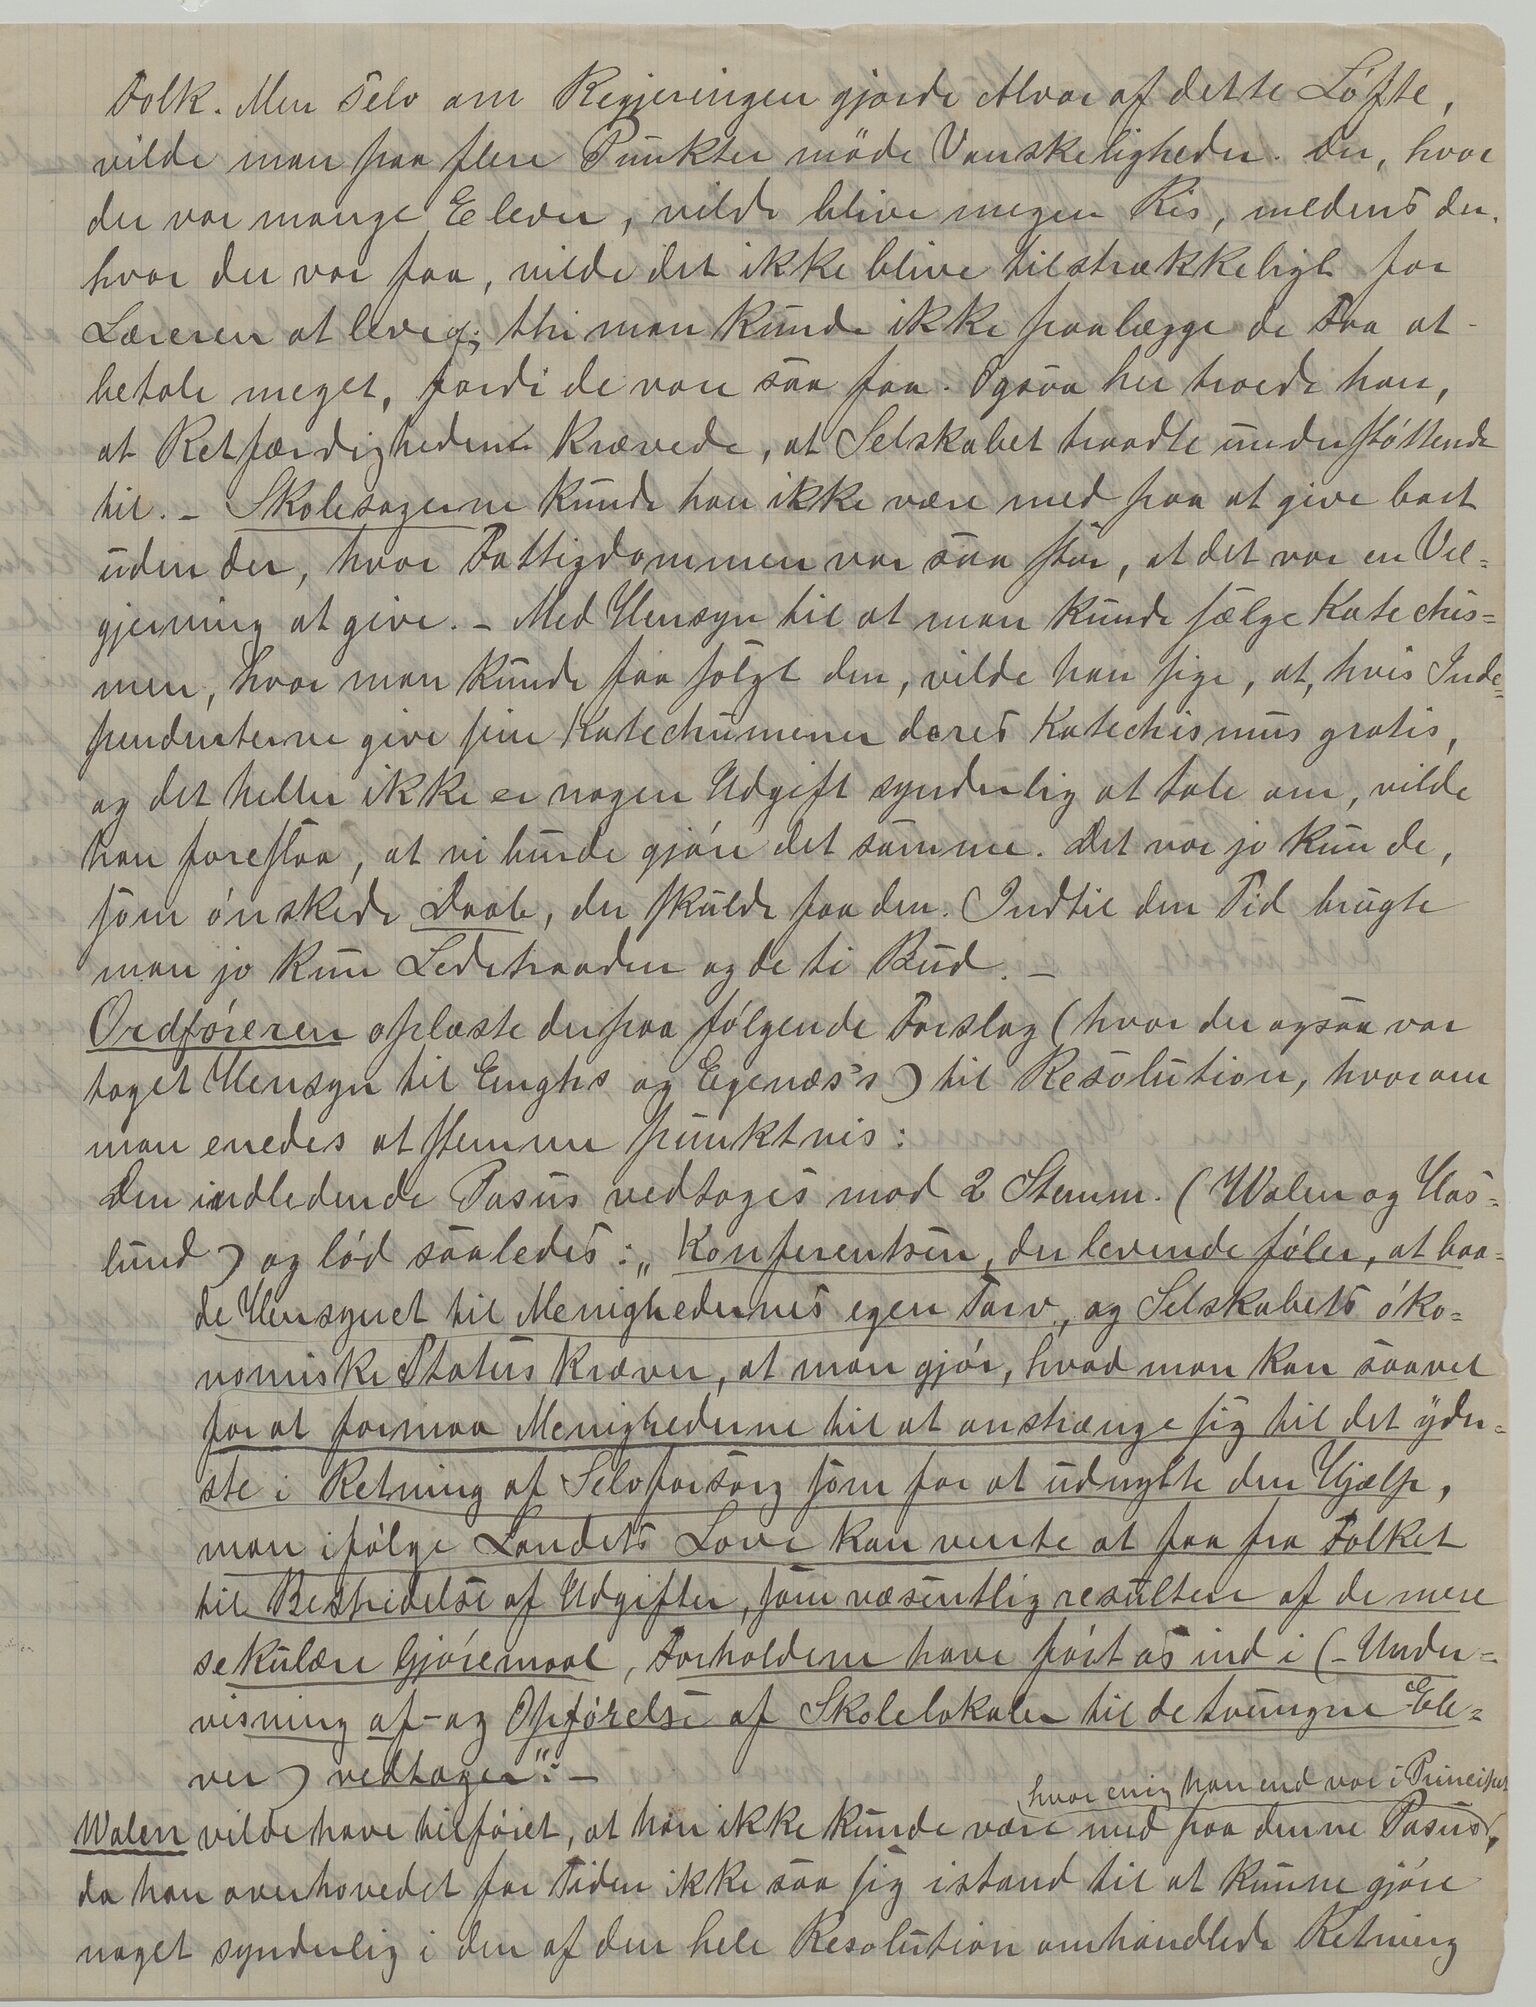 Folk. Men selv om Regjeringen gjorde Alvor af dette Løfte,
vilde man paa flere Punkter møde Vanskeligheder. Der, hvor
der var mange Elever, vilde blive megen Ris, medens der,
hvor der var faa, vilde det ikke blive tilstrækkeligt for
Læreren at leve af; thi man kunde ikke paalægge de Faa at
betale meget, fordi de vare saa faa. Ogsaa her troede han,
at Retfærdigheden krævede, at Selskabet traadte understøttende
til. – Skolesagerne kunde han ikke være med paa at give bort
uden der, hvor Fattigdommen var saa stor, at det var en Vel=
gjerning at give. – Med Hensyn til at man kunde sælge Katechis=
men, hvor man kunde faa solgt den, vilde han sige, at, hvis Inde=
pendenterne give sine Katechumener deres Katechismus gratis,
og det heller ikke er nogen Udgift synderlig at tale om, vilde
han foreslaa, at vi burde gjøre det samme. Det var jo kun de,
som ønskede Daab, der skulde faa den. Indtil den Tid brugte
man jo kun Ledetraaden og de ti Bud. –
Ordføreren oplæste derpaa følgende Forslag (hvor der ogsaa var
taget Hensyn til Enghs og Egenæs's) til Resolution, hvorom
man enedes at stemme punktvis:
Den indledende Pasus vedtoges mod 2 Stemm. (Walen og Has=
lund) og lød saaledes: „Konferentsen, der levende føler, at baa=
de Hensynet til Menighedernes egen Tarv, og Selskabets øko=
nomiske Status kræver, at man gjør, hvad man kan saavel
for at formaa Menighederne til at anstrænge sig til det yder=
ste i Retning af Selvforsørg som for at udnytte den Hjælp,
man ifølge Landets Love kan vente at faa fra Folket
til Bestridelse af Udgifter, som væsentlig resultere af de mere
sekulære Gjøremaal, Forholdene have ført os ind i (– Under=
visning af – og Opførelse af Skolelokaler til de tvungne Ele=
ver) vedtager": –
hvor enig han end var i Principet
Walen vilde have tilføiet, at han ikke kunde være med paa denne Pasus,
da han overhovedet for Tiden ikke saa sig istand til at kunne gjøre
noget synderlig i den af den hele Resolution omhandlede Retning